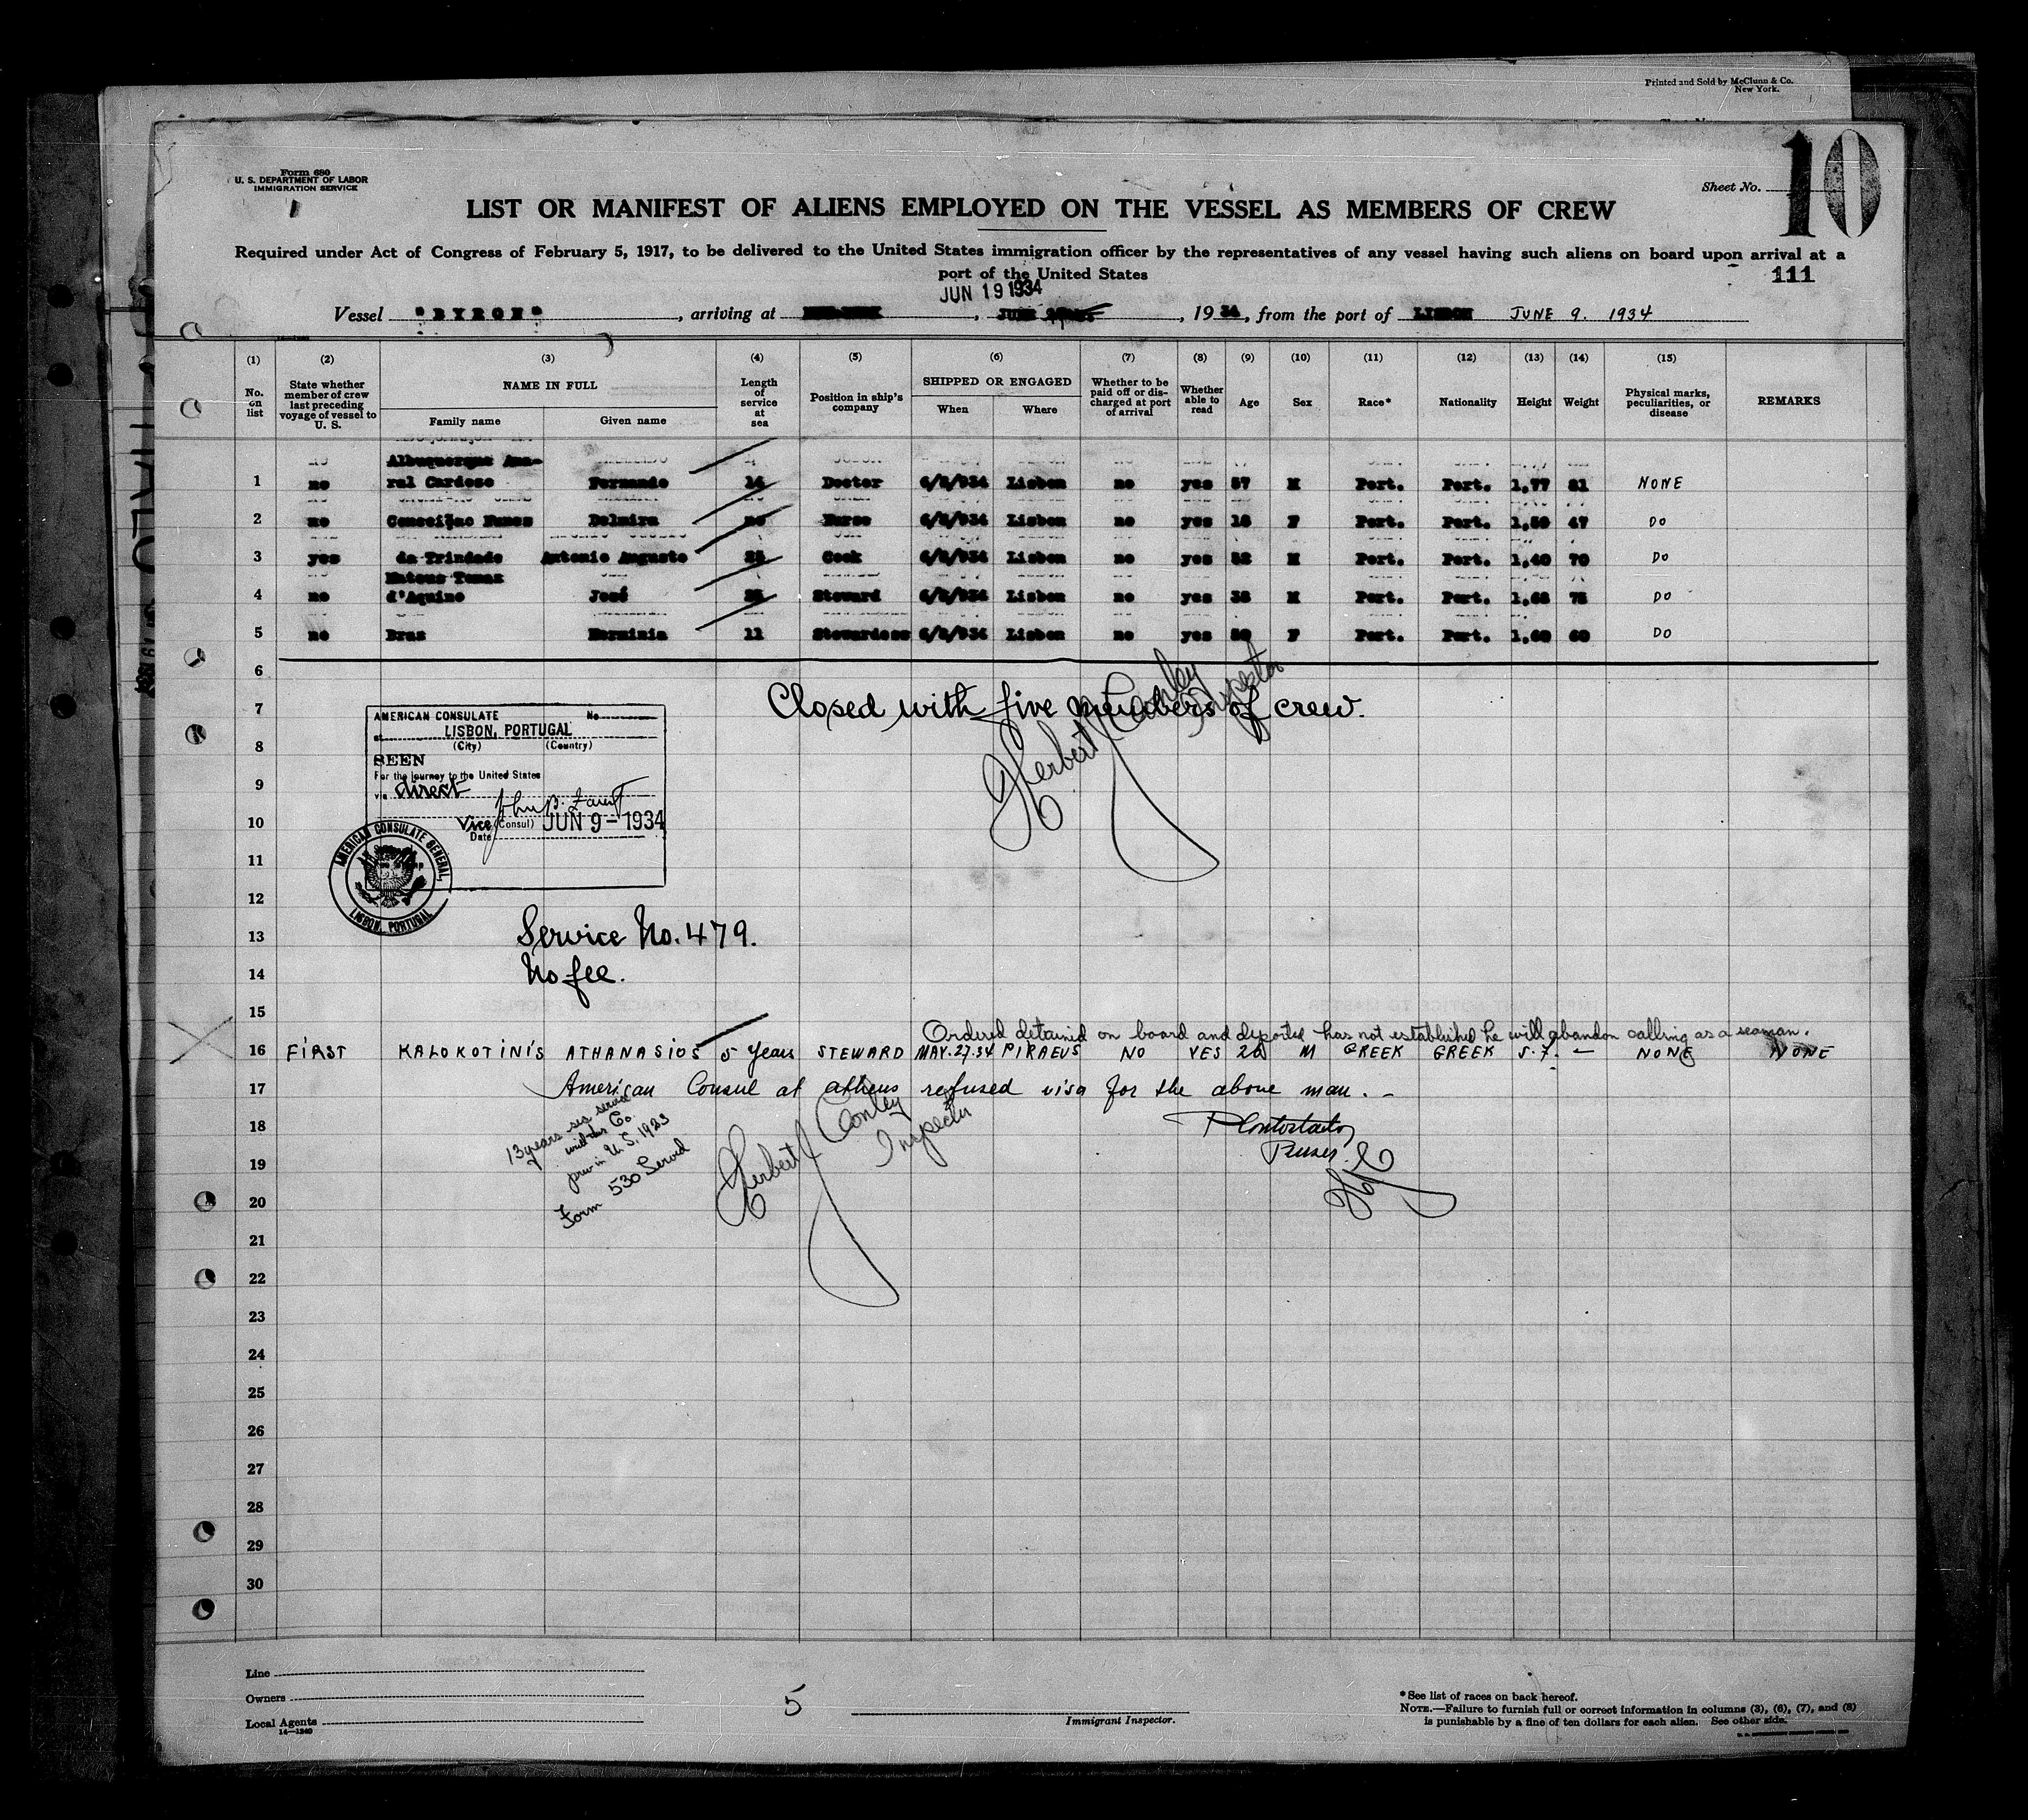 Printed and Sold by McClunn & Co.
New York.
Form 680
U. S. DEPARTMENT OF LABOR
IMMIGRATION SERVICE
Sheet No. 10
LIST OR MANIFEST OF ALIENS EMPLOYED ON THE VESSEL AS MEMBERS OF CREW
Required under Act of Congress of February 5, 1917, to be delivered to the United States immigration officer by the representatives of any vessel having such aliens on board upon arrival at a
port of the United States
111
JUN 19 1934
Vessel "BYRON", arriving at , , 1934, from the port of LISBON JUNE 9. 1934
(1) (2) (3) (4) (5) (6) (7) (8) (9) (10) (11) (12) (13) (14) (15)
No. on list
State whether member of crew last preceding voyage of vessel to U. S.
NAME IN FULL
Family name
Given name
Length of service at sea
Position in ship's company
SHIPPED OR ENGAGED
When
Where
Whether to be paid off or discharged at port of arrival
Whether able to read
Age
Sex
Race*
Nationality
Height
Weight
Physical marks, peculiarities, or disease
REMARKS
Albuquerque Ama-
1 no ral Cardoso Fernando 14 Doctor Lisbon no yes 57 M Port. Port. 1,77 81 NONE
2 no Conceição Nunes Delmira no Nurse Lisbon no yes F Port. Port. 47 DO
3 yes da Trindade Antonio Augusto Cook Lisbon no yes 52 M Port. Port. 70 DO
Mateus Tomaz
4 no d'Aquino José Steward Lisbon no yes 38 M Port. Port. DO
5 no Bras Herminia 11 Stewardess Lisbon no yes F Port. Port. 1,60 60 DO
6
7 Closed with five members of crew.
Herbert Conley
Inspector
AMERICAN CONSULATE No.
at LISBON, PORTUGAL
(City) (Country)
SEEN
For the journey to the United States
via direct
Vice (Consul) JUN 9 - 1934
Date
AMERICAN CONSULATE GENERAL,
LISBON, PORTUGAL
8
9
10
11
12
13 Service No. 479.
14 No fee.
15
Ordered detained on board and deported has not established he will abandon calling as a seaman.
16 FIRST KALOKOTINIS ATHANASIOS 5 Years STEWARD MAY.27.34 PIRAEUS NO YES 26 M GREEK GREEK 5.7. — NONE NONE
17 American Consul at athens refused visa for the above man. -
13 years sea service
with this Co.
prev in U. S. 1923
Form 530 Served
Herbert Conley
Inspector
Purser
18
19
20
21
22
23
24
25
26
27
28
29
30
Line
Owners
Local Agents
14—1240
5
Immigrant Inspector.
*See list of races on back hereof.
NOTE.—Failure to furnish full or correct information in columns (3), (6), (7), and (8)
is punishable by a fine of ten dollars for each alien. See other side.